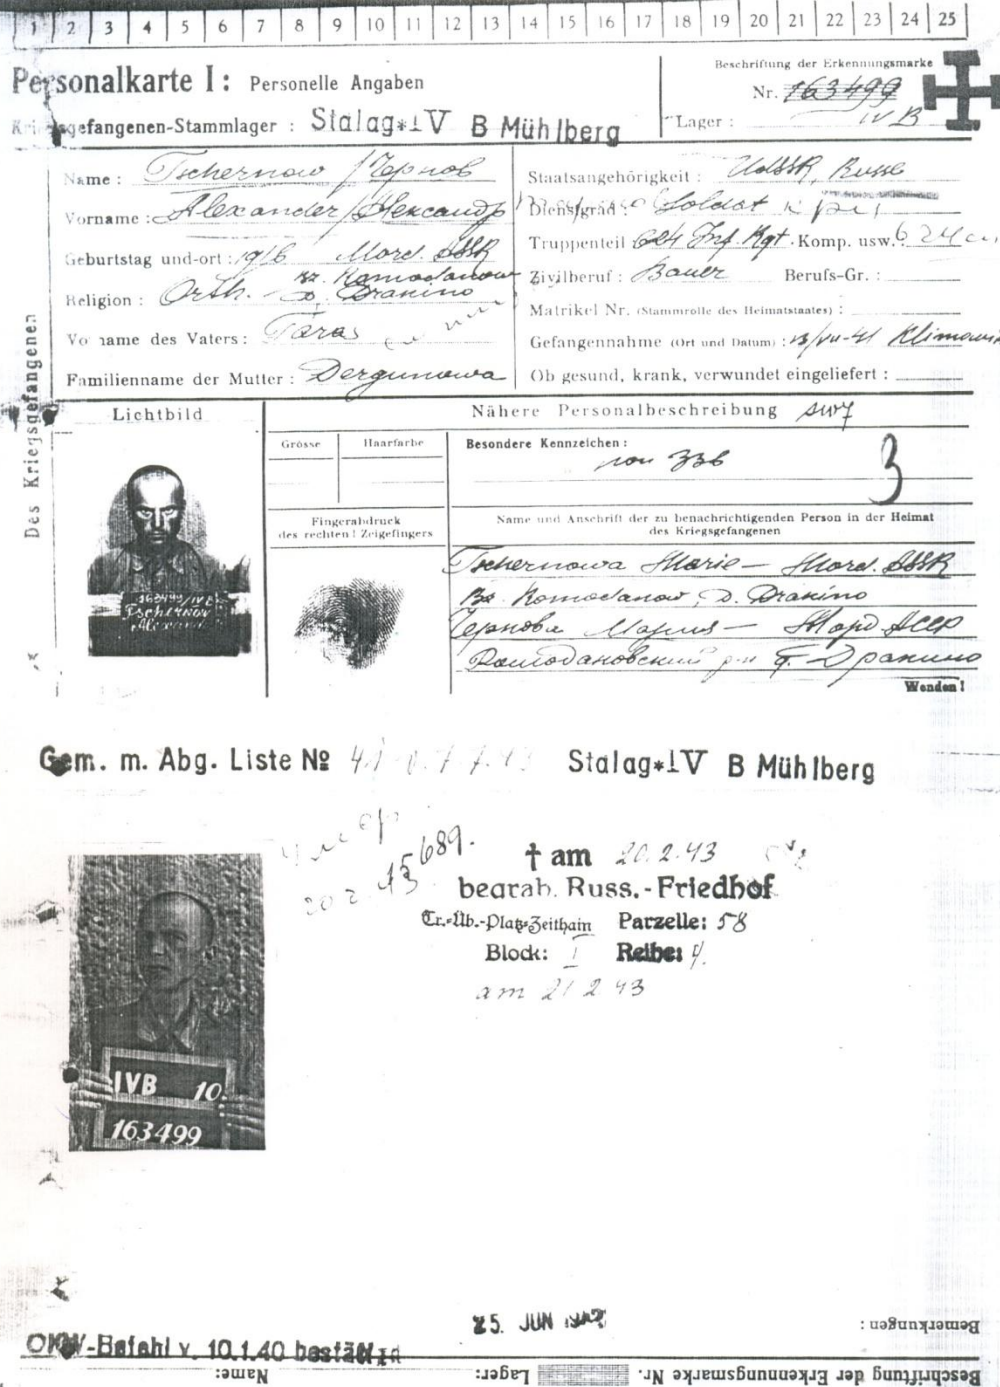 1 2 3 4 5 6 7 8 9 10 11 12 13 14 15 16 17 18 19 20 21 22 23 24 25
Personalkarte I: Personelle Angaben
Kriegsgefangenen-Stammlager: Stalag*IV B Mühlberg
Beschriftung der Erkennungsmarke
Nr. 163499
Lager: IV B
Des Kriegsgefangenen
Name: Tschernow / Чернов
Vorname: Alexander / Александр
Geburtstag und-ort: 1916 Mord. SSR
Bz. Romodanow
Religion: Orth. D. Drakino
Vorname des Vaters: Taras
Familienname der Mutter: Dergunowa
Staatsangehörigkeit: UdSSR, Russe
Dienstgrad: Soldat
Truppenteil 624 Inf. Rgt. Komp. usw.
Zivilberuf: Bauer Berufs-Gr.:
Matrikel Nr. (Stammrolle des Heimatstaates):
Gefangennahme (Ort und Datum): 41
Ob gesund, krank, verwundet eingeliefert:
Lichtbild
163499/IV B
Tschernow
Alexand
Nähere Personalbeschreibung
Grösse Haarfarbe
Besondere Kennzeichen:
3
Fingerabdruck
des rechten! Zeigefingers
Name und Anschrift der zu benachrichtigenden Person in der Heimat
des Kriegsgefangenen
Tschernowa Marie - Mord. SSR
Bz. Romodanow, D. Drakino
Чернова Мария - Морд АССР
Ромодановский р-н Дракино
Wenden!
Gem. m. Abg. Liste № 41 v. 7.7.43 Stalag*IV B Mühlberg
умер
20 2 43
15689.
† am 20.2.43
begrab. Russ.-Friedhof
Tr.-Üb.-Platz-Zeithain Parzelle: 58
Block: I Reihe: 4.
am 21 2 43
IVB 10.
163499
25. JUN
Bemerkungen:
OKW-Befehl v. 10.1.40 bestätigt
Beschriftung der Erkennungsmarke Nr. Lager: Name: